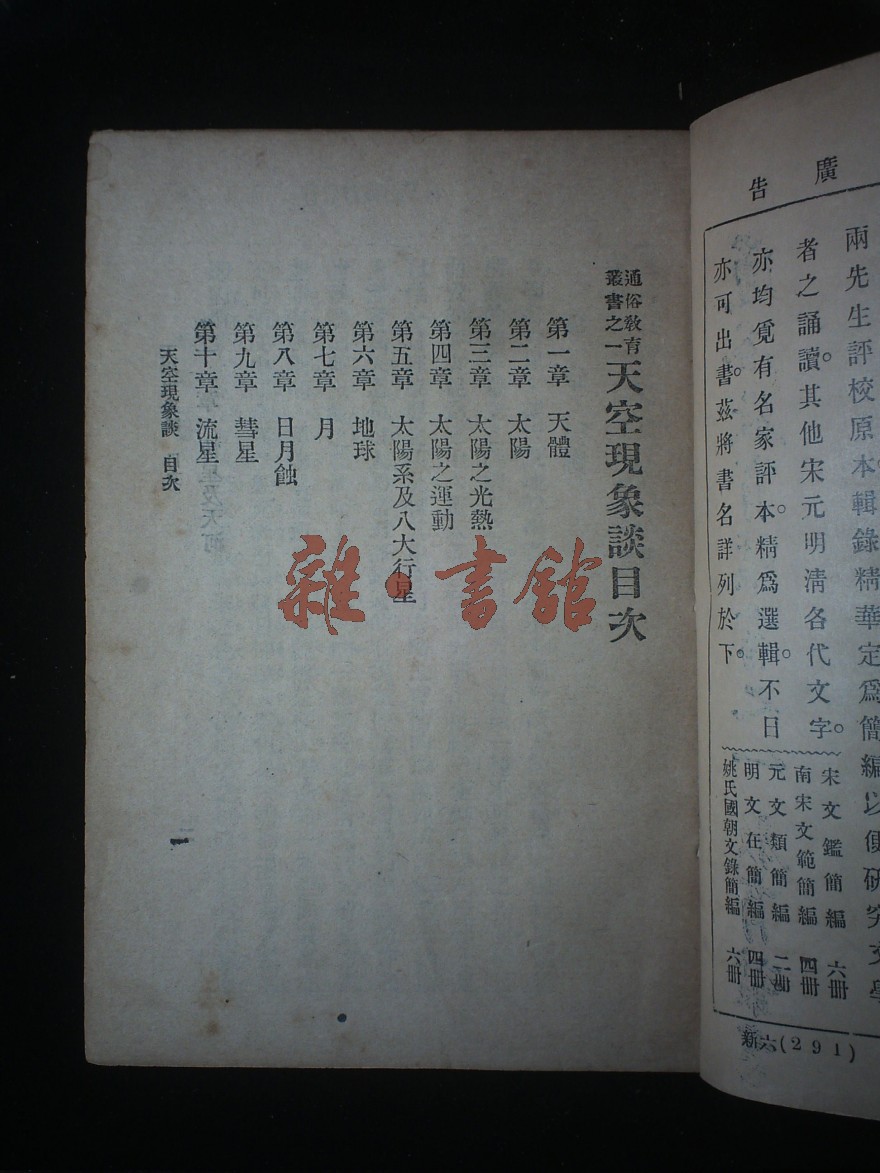 廣告
兩先生評校原本輯錄精華定爲簡編以便研究文學
者之誦讀。其他宋元明清各代文字。
亦均覓有名家評本。精爲選輯。不日
亦可出書。茲將書名詳列於下。
宋文鑑簡編 六冊
南宋文範簡編 四冊
元文類簡編 二冊
明文在簡編 四冊
姚氏國朝文錄簡編 六冊
新六(291)
通俗教育
叢書之一
天空現象談目次
第一章 天體
第二章 太陽
第三章 太陽之光熱
第四章 太陽之運動
第五章 太陽系及八大行星
第六章 地球
第七章 月
第八章 日月蝕
第九章 彗星
第十章 流星
天空現象談 目次
雜·書館